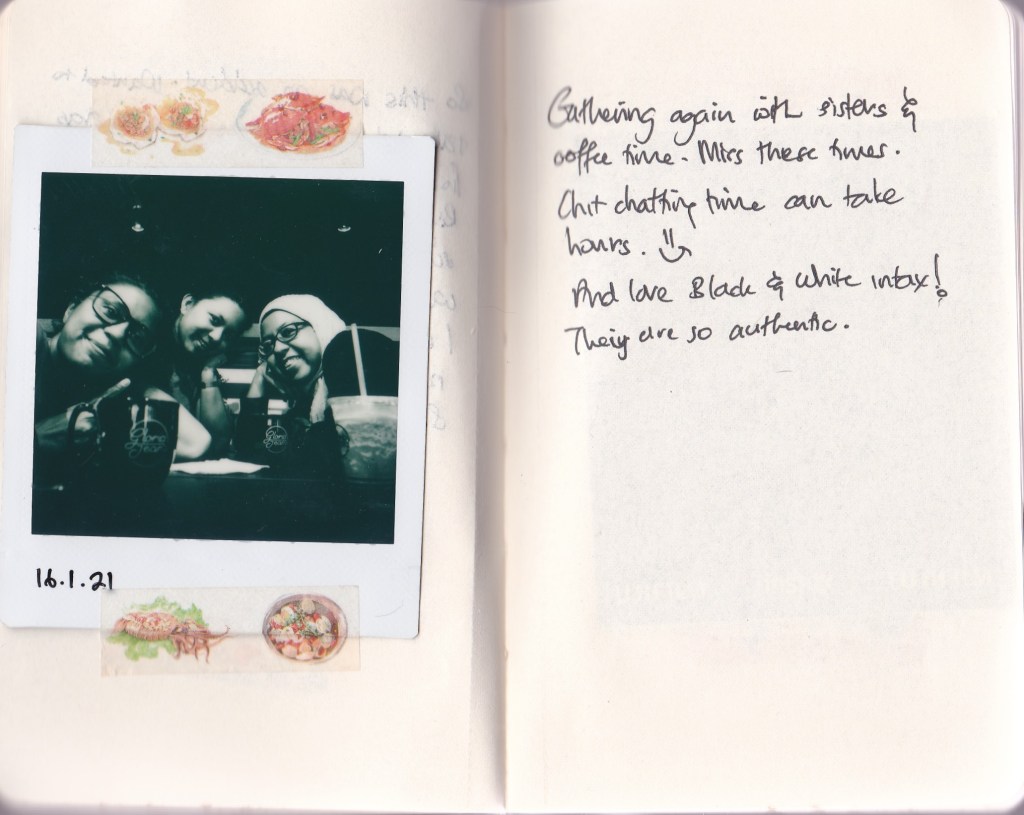 16.1.21
Gathering again with sisters &
coffee time. Miss these times.
Chit chatting time can take
hours.
And love Black & White intax!
They are so authentic.